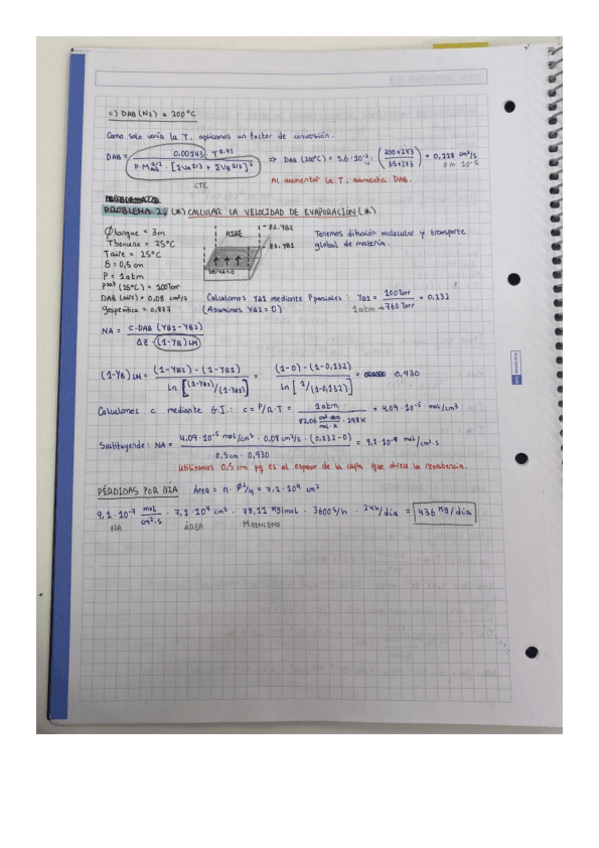 c) DAB (N2) a 200°C
Como solo varía la T, aplicamos un factor de conversión.
DAB = 0,00143 · T^1.75 / P·MAB^1/2 · [ΣVA^1/3 + ΣVB^1/3]^2 ⇒ DAB (200°C) = · (200+273 / 35+273) = 0,118 cm²/s
CTE
Al aumentar la T, aumenta DAB.
PROBLEMA 2. (*) CALCULAR LA VELOCIDAD DE EVAPORACIÓN (*)
Φ tanque = 3m
T benceno = 25°C
T aire = 25°C
δ = 0,5 cm
P = 1 atm
Psat (25°C) = 100 Torr
DAB (air) = 0,08 cm²/s
gespecífica = 0,877
AIRE
z2, YB2
z1, YB1
benceno
Tenemos difusión molecular y transporte
global de materia.
Calculamos YB1 mediante P parciales: YB1 = 100 Torr / 760 Torr = 0,132
(Asumimos YB2 = 0) 1 atm →
NA = C·DAB (YB1 - YB2) / Δz · (1-YB)LM
(1-YB)LM = (1-YB2) - (1-YB1) / Ln [(1-YB2)/(1-YB1)] = (1-0) - (1-0,132) / Ln [1/(1-0,132)] = 0,930
Calculamos c mediante G.I.: c = P/R·T = 1 atm / 82,06 cm³·atm/mol·K · 298K = 4,09·10^-5 mol/cm³
Sustituyendo: NA = 4,09·10^-5 mol/cm³ · 0,08 cm²/s · (0,132-0) / 0,5 cm · 0,930 = mol/cm²·s
Utilizamos 0,5 cm pq es el espesor de la capa que ofrece la resistencia.
PÉRDIDAS POR DÍA Área = π · Φ²/4 = 7,1·10^4 cm²
9,1·10^-7 mol/cm²·s · 7,1·10^4 cm² · 78,11 kg/mol · 3600 s/h · 24h/día = 436 kg/día
NA ÁREA M BENCENO